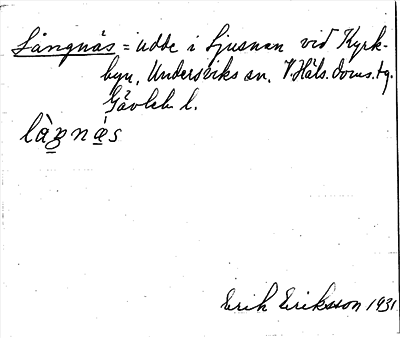 Långnäs = udde i Ljusnan vid Kyrk-
byn, Undersviks sn. V. Häls. doms. tg.
Gävleb. l.
làŋnä́s
Erik Eriksson 1931